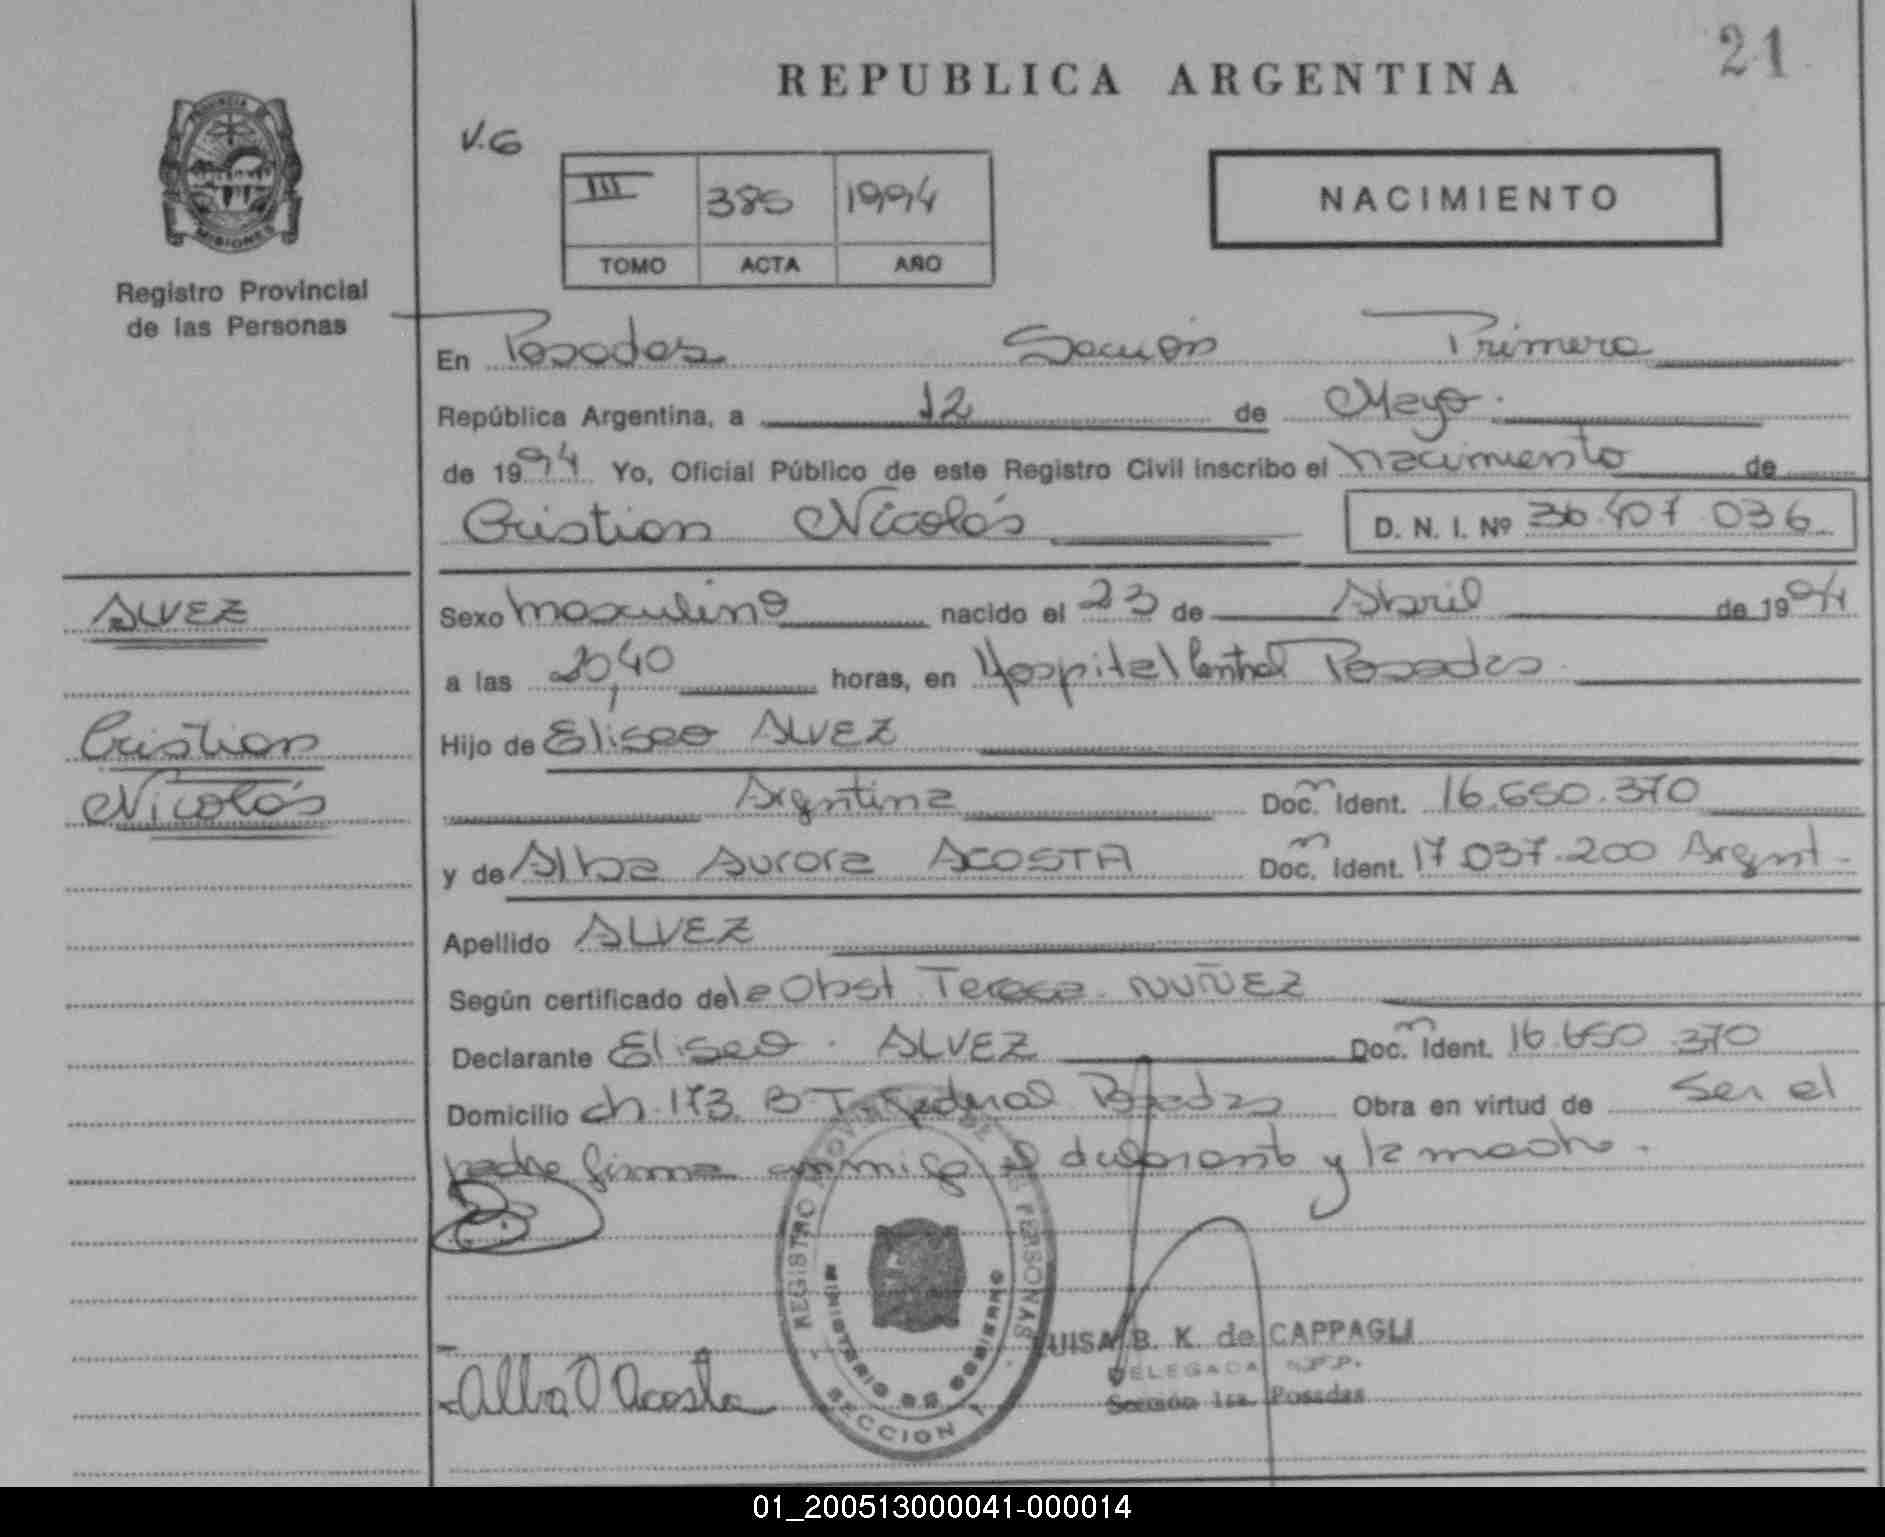 21
REPUBLICA ARGENTINA
V.G
III 385 1994
TOMO ACTA AÑO
NACIMIENTO
PROVINCIA
MISIONES
Registro Provincial
de las Personas
En Posadas Sección Primera
República Argentina, a 12 de Mayo
de 1994 Yo, Oficial Público de este Registro Civil inscribo el nacimiento de
Cristian Nicolás D. N. I. Nº 036
ALVEZ
Cristian
Nicolás
Sexo masculino nacido el 23 de Abril de 1994
a las 20,40 horas, en Hospital Central Posadas
Hijo de Eliseo ALVEZ
Argentina Doc. Ident. 16.650.370
y de Alba Aurora ACOSTA Doc. Ident. 17.037.200 Argent.
Apellido ALVEZ
Según certificado de la Obst Teresa NUÑEZ
Declarante Eliseo ALVEZ Doc. Ident. 16.650.370
Domicilio ch. 173 B T. Federal Posadas Obra en virtud de ser el
padre firma conmigo el declarante y la madre.
REGISTRO PROVINCIAL DE LAS PERSONAS
MINISTERIO DE GOBIERNO
SECCION 1
LUISA B. K. de CAPPAGLI
DELEGADA R.P.P.
Sección 1ra. Posadas
Alba A Acosta
01_200513000041-000014